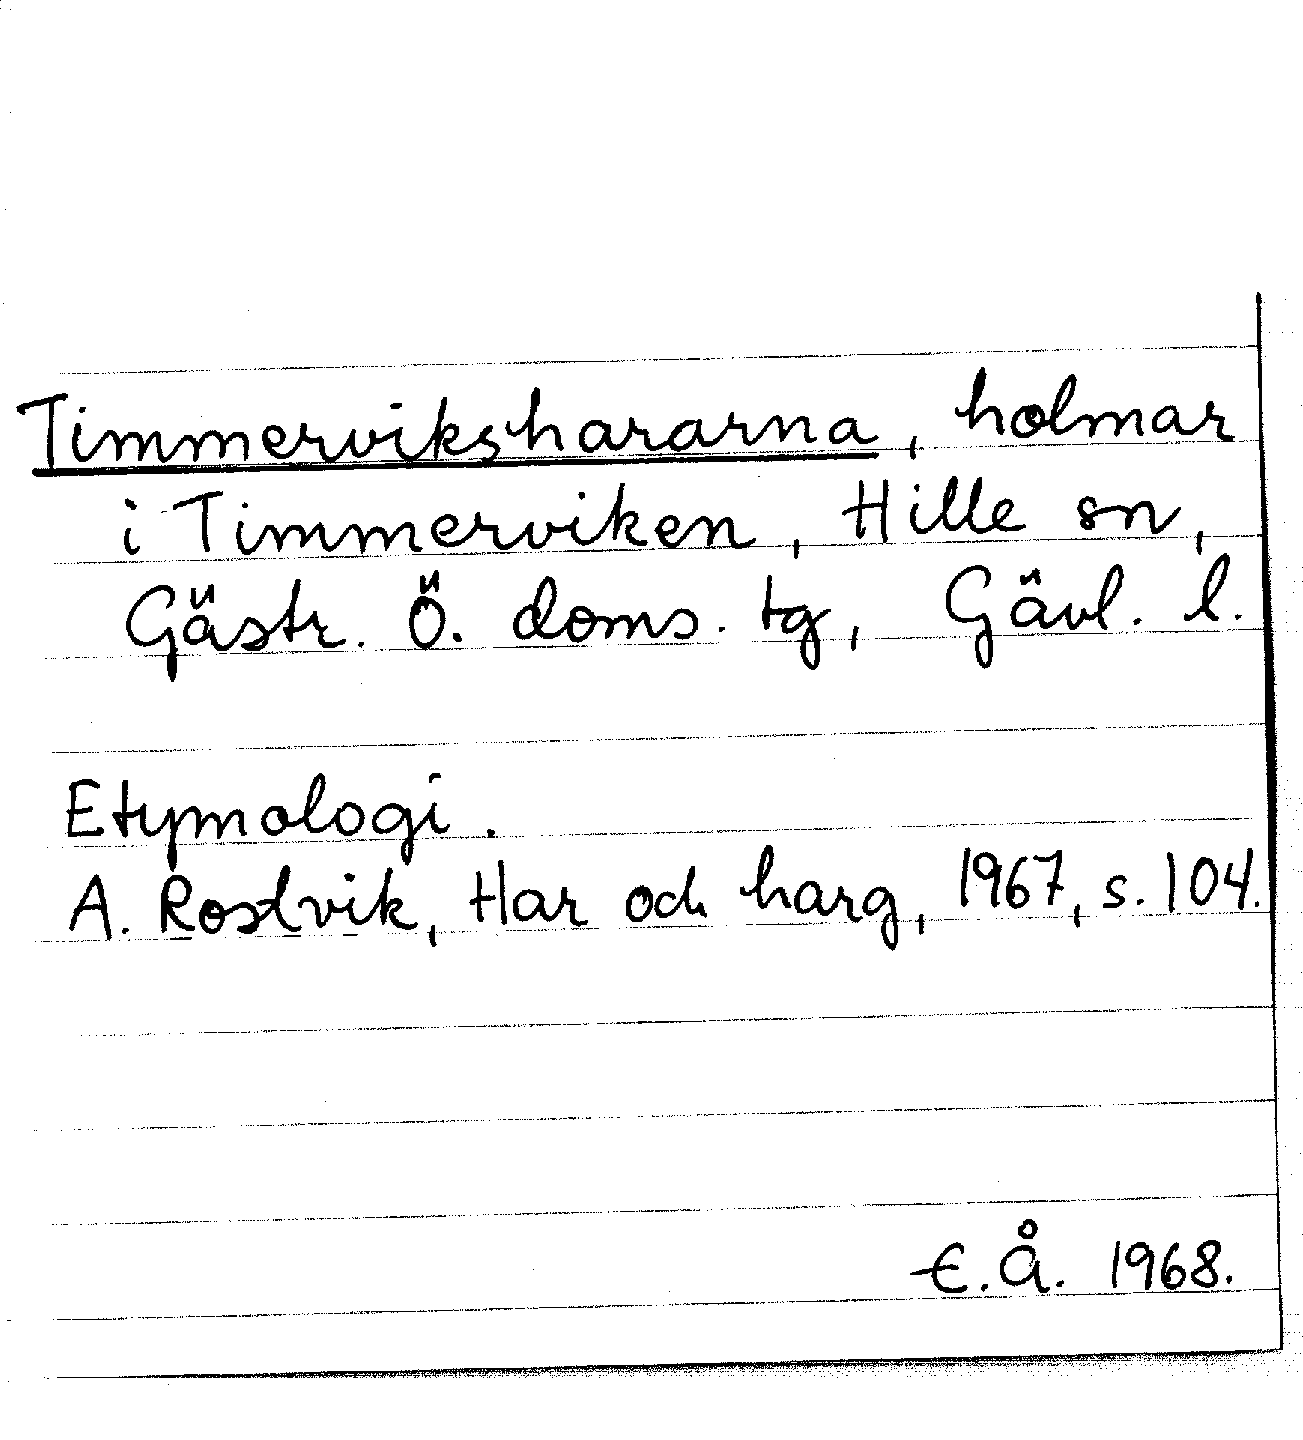 Timmervikshararna, holmar
i Timmerviken, Hille sn,
Gästr. Ö. doms. tg, Gävl. l.
Etymologi.
A. Rostvik, Har och harg, 1967, s. 104.
E.Å. 1968.